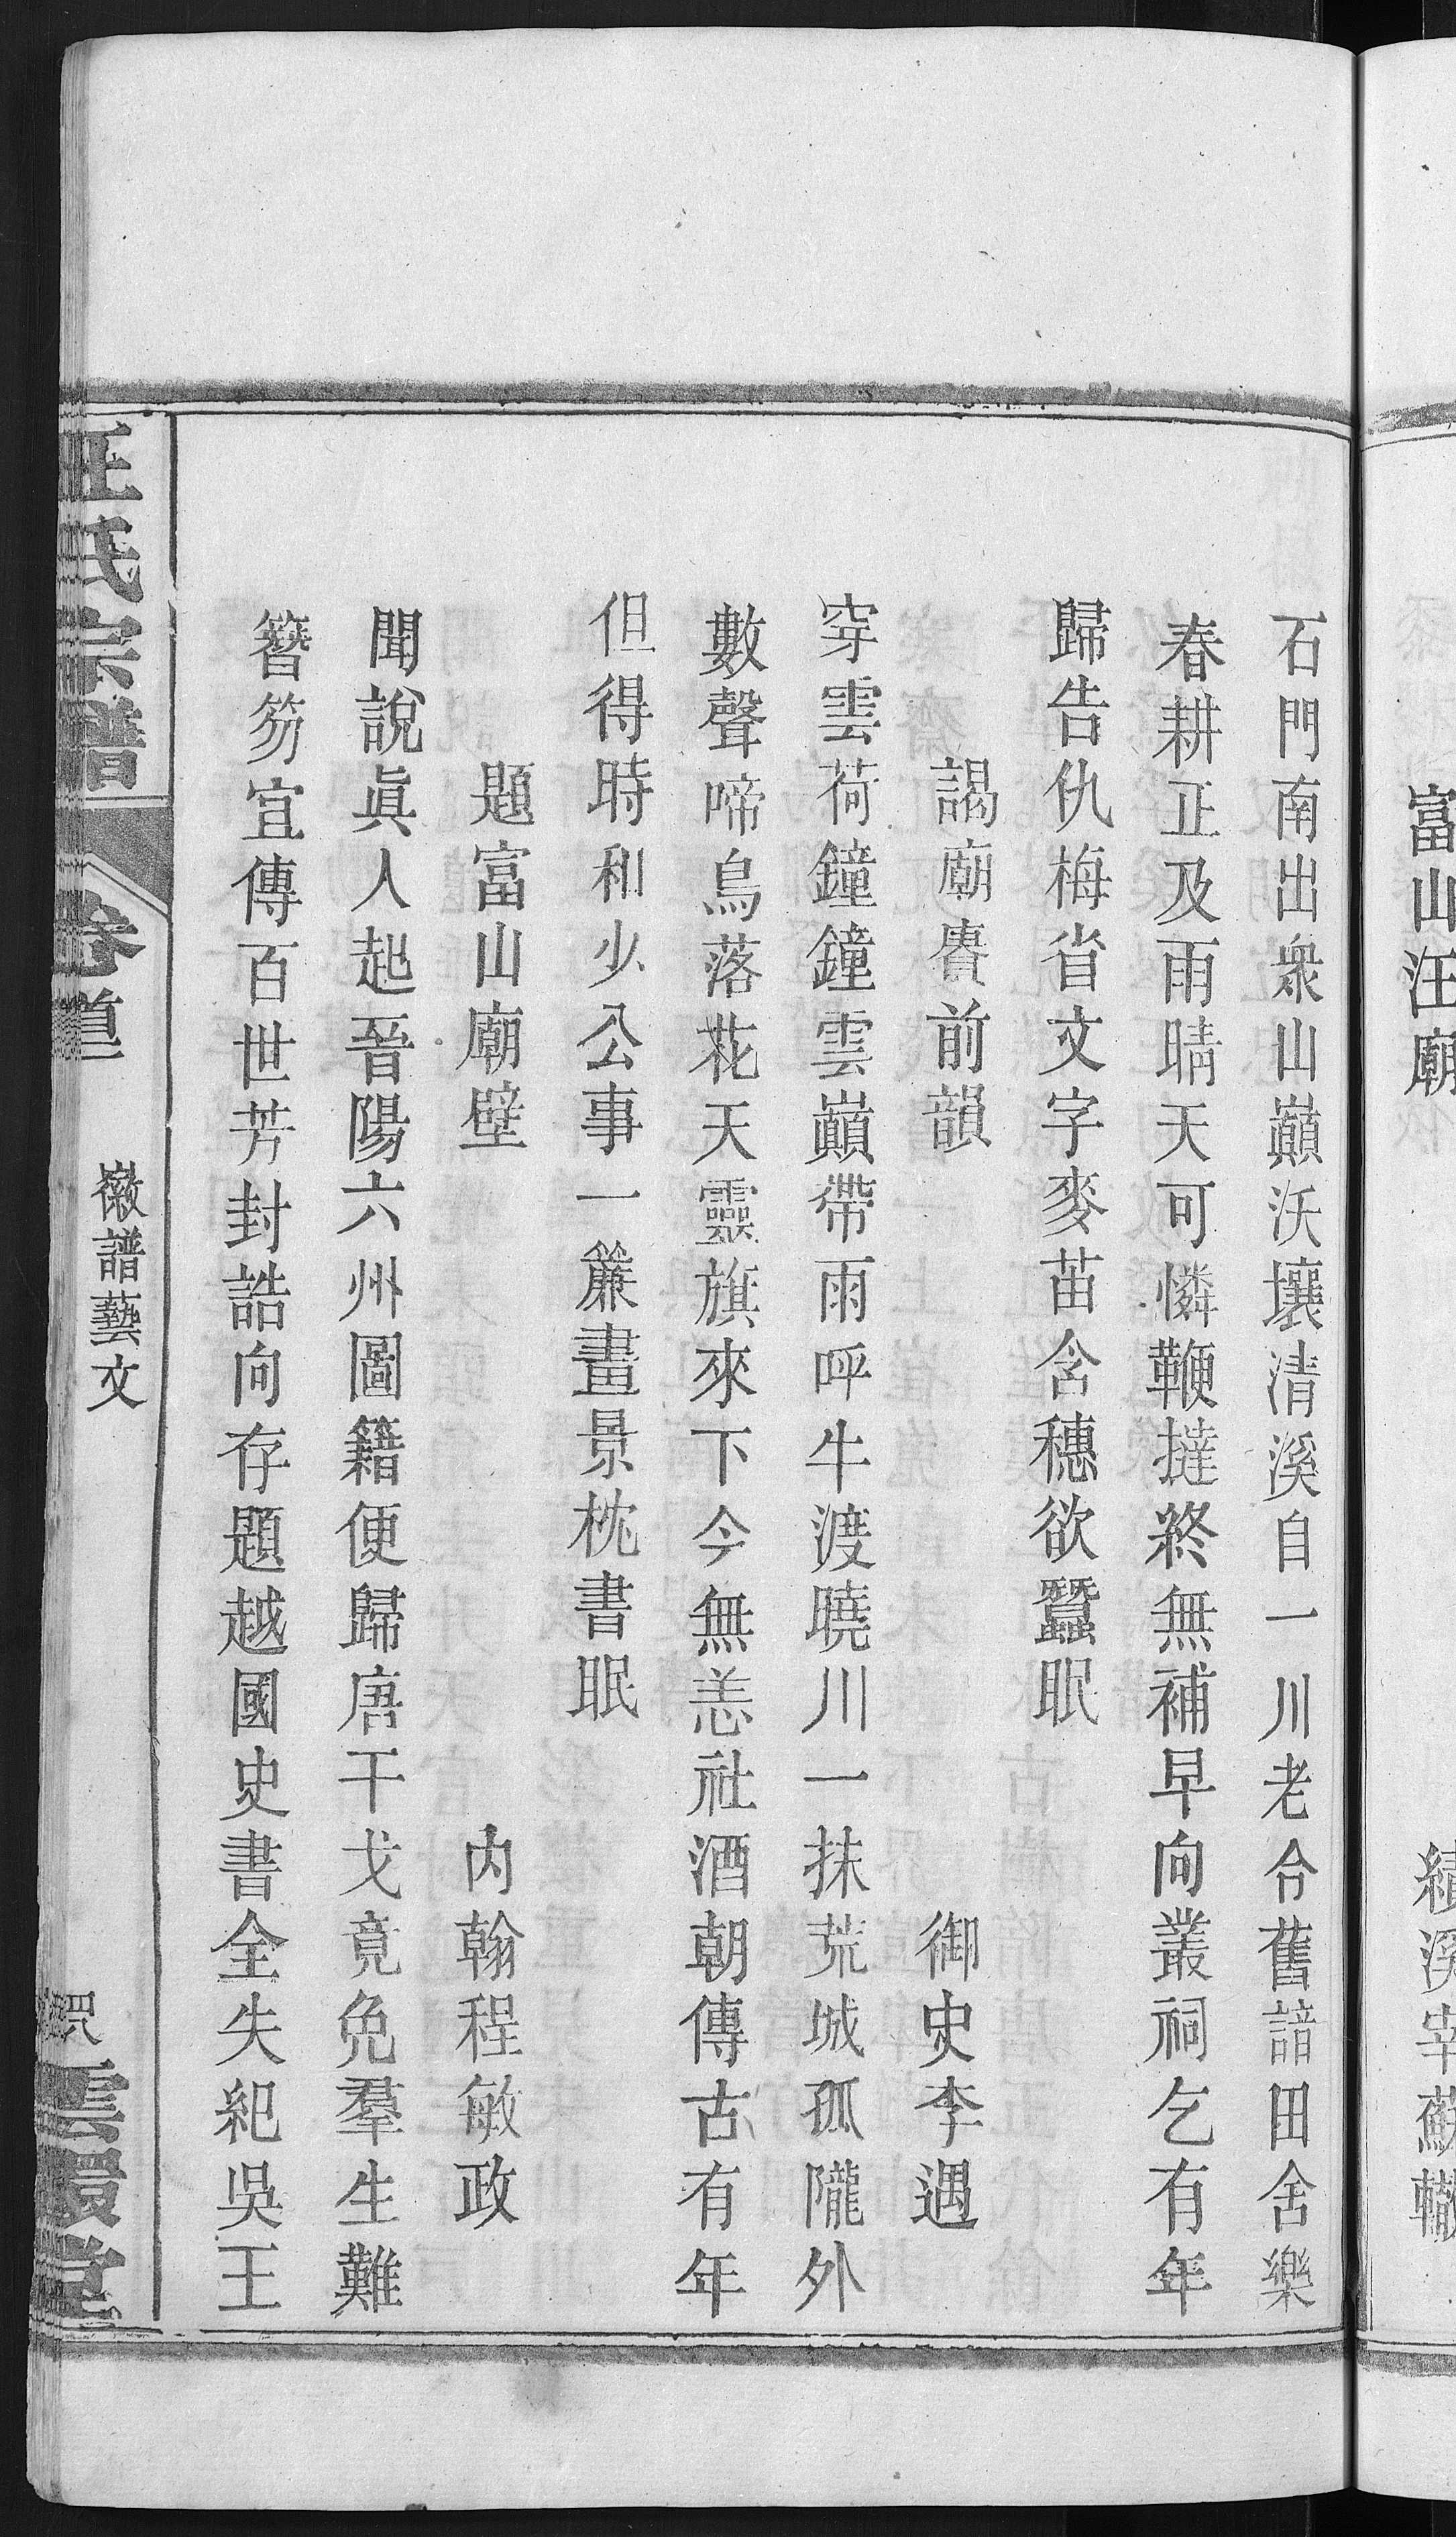 富山汪廟 績溪宰蘇轍
石門南出衆山巔沃壤清溪自一川老令舊諳田舍樂
春耕正及雨晴天可憐鞭撻終無補早向叢祠乞有年
歸告仇梅省文字麥苗含穗欲蠶眠
謁廟賡前韻 御史李遇
穿雲荷鐘鐘雲巔帶雨呼牛渡曉川一抹荒城孤隴外
數聲啼鳥落花天靈旗來下今無恙社酒朝傳古有年
但得時和少公事一簾晝景枕書眠
題富山廟壁 內翰程敏政
聞說眞人起晉陽六州圖籍便歸唐干戈竟免羣生難
簪笏宜傳百世芳封誥向存題越國史書全失紀吳王
汪氏宗譜 卷首 徽譜藝文 雲礽堂